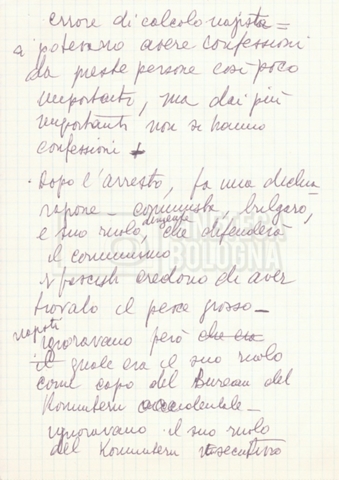 errore di calcolo nazista =
a potevano avere confessioni
da queste persone così poco
importanti, ma dai più
importanti non si hanno
confessioni +
· Dopo l'arresto, fa una dichia
razione – comunista, bulgaro,
dirigente
e suo ruolo, che difenderà
il comunismo
I fascisti credono di aver
trovato il pesce grosso –
nazisti
ignoravano però che era
il quale era il suo ruolo
come capo del Bureau del
Komintern occidentale –
ignoravano il suo ruolo
del Komintern esecutivo
CINETECA
BOLOGNA